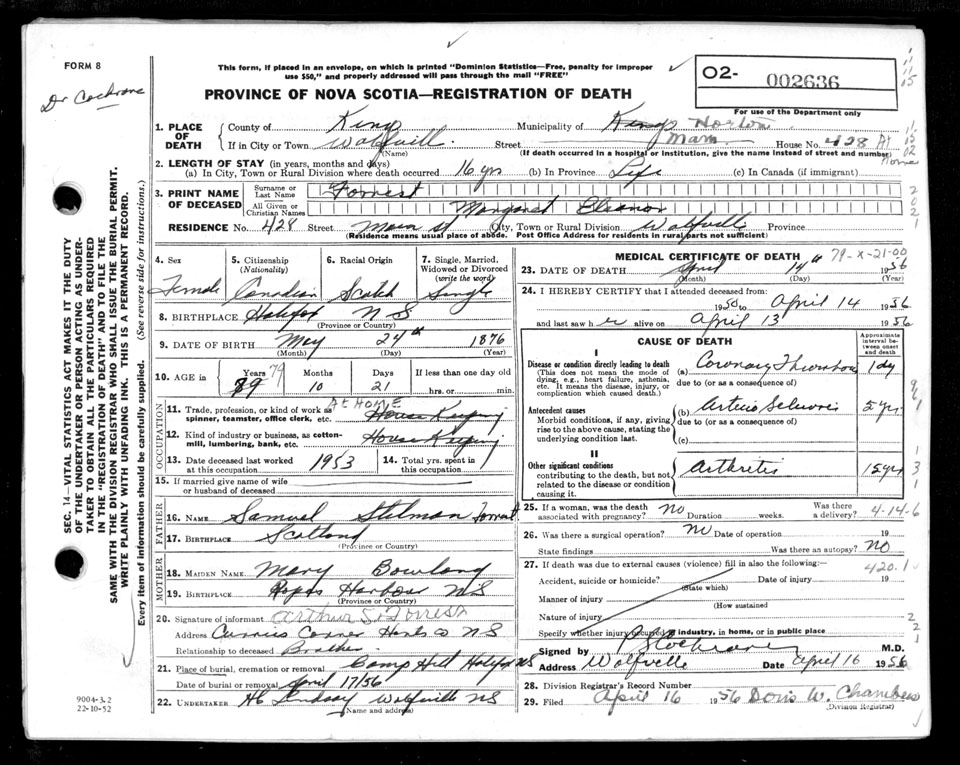 FORM 8
Dr Cochrane
This form, if placed in an envelope, on which is printed "Dominion Statistics—Free, penalty for improper
use $50," and properly addressed will pass through the mail "FREE"
PROVINCE OF NOVA SCOTIA—REGISTRATION OF DEATH
O2- 002636
For use of the Department only
1. PLACE OF DEATH County of Kings Municipality of Kings Horton
If in City or Town Wolfville (Name) Street Main House No. 428 At Home
(If death occurred in a hospital or institution, give the name instead of street and number)
2. LENGTH OF STAY (in years, months and days)
(a) In City, Town or Rural Division where death occurred 16 yrs (b) In Province Life (c) In Canada (if immigrant)
3. PRINT NAME OF DECEASED Surname or Last Name Forrest
All Given or Christian Names Margaret Eleanor
RESIDENCE No. 428 Street Main St City, Town or Rural Division Wolfville Province
(Residence means usual place of abode. Post Office Address for residents in rural parts not sufficient)
SEC. 14—VITAL STATISTICS ACT MAKES IT THE DUTY
OF THE UNDERTAKER OR PERSON ACTING AS UNDER-
TAKER TO OBTAIN ALL THE PARTICULARS REQUIRED
IN THE "REGISTRATION OF DEATH" AND TO FILE THE
SAME WITH THE DIVISION REGISTRAR WHO SHALL ISSUE THE BURIAL PERMIT.
WRITE PLAINLY WITH UNFADING INK. THIS IS A PERMANENT RECORD.
Every item of information should be carefully supplied. (See reverse side for instructions.)
4. Sex Female
5. Citizenship (Nationality) Canadian
6. Racial Origin Scotch
7. Single, Married, Widowed or Divorced (write the word) Single
8. BIRTHPLACE Halifax N S
(Province or Country)
9. DATE OF BIRTH May 24th 1876
(Month) (Day) (Year)
10. AGE in Years 89 79 Months 10 Days 21 If less than one day old hrs. or min.
OCCUPATION
11. Trade, profession, or kind of work as spinner, teamster, office clerk, etc. AT HOME House Keeping
12. Kind of industry or business, as cotton-mill, lumbering, bank, etc. House Keeping
13. Date deceased last worked at this occupation 1953 14. Total yrs. spent in this occupation
15. If married give name of wife or husband of deceased
FATHER
16. NAME Samuel Forrest
17. BIRTHPLACE Scotland
(Province or Country)
MOTHER
18. MAIDEN NAME Mary
19. BIRTHPLACE Harbour NS
(Province or Country)
20. Signature of informant Arthur S. Forrest
Address Corner Hants Co N S
Relationship to deceased Brother
21. Place of burial, cremation or removal Camp Hill Halifax NS
Date of burial or removal April 17/56
22. UNDERTAKER Lindsay Wolfville NS
(Name and address)
9004-3.2
22-10-52
MEDICAL CERTIFICATE OF DEATH 79-X-21-00
23. DATE OF DEATH April 14th 1956
(Month) (Day)
24. I HEREBY CERTIFY that I attended deceased from:
1950 to April 14 1956
and last saw her alive on April 13 1956
CAUSE OF DEATH
Approximate interval between onset and death
I
Disease or condition directly leading to death
(This does not mean the mode of dying, e.g., heart failure, asthenia, etc. It means the disease, injury, or complication which caused death.)
(a) Coronary Thrombosis 1 day
due to (or as a consequence of)
Antecedent causes
Morbid conditions, if any, giving rise to the above cause, stating the underlying condition last.
(b) Arterio Sclerosis 5 yrs
due to (or as a consequence of)
(c)
II
Other significant conditions
contributing to the death, but not related to the disease or condition causing it.
Arthritis 15 yrs
25. If a woman, was the death associated with pregnancy? No Duration weeks. Was there a delivery? 4-14-6
26. Was there a surgical operation? No Date of operation 19
State findings Was there an autopsy? NO
27. If death was due to external causes (violence) fill in also the following:— 420.1
Accident, suicide or homicide? (State which) Date of injury 19
Manner of injury
(How sustained
Nature of injury
Specify whether injury occurred in industry, in home, or in public place
Signed by Cochrane M.D.
Address Wolfville Date April 16 1956
28. Division Registrar's Record Number
29. Filed April 16 1956 Doris W. Chambers
(Division Registrar)